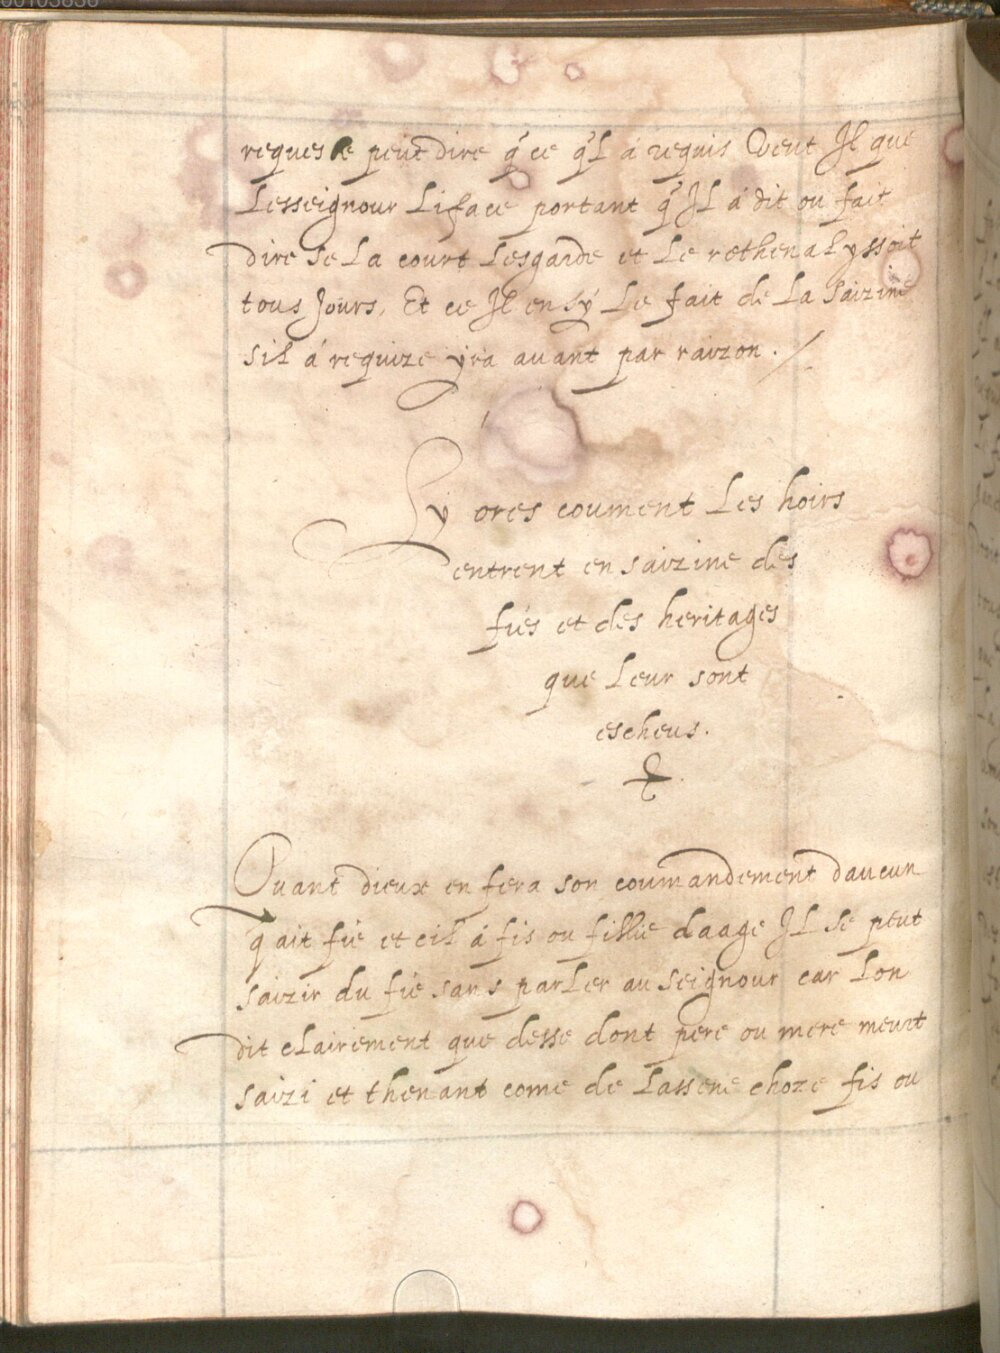 00103856
requeste peut dire q̃ ce q̃l á requis Veut Jl que
Lesseignour Liface portant q̃ JL á dit ou fait
dire se La court Lesgarde et Le rethenal yssoit
tous Jours, Et ce Jl en sÿ Le fait de La saizine
sil á requize ÿra auant par raizon ./.
Lÿ ores coument Les hoirs
entrent en saizine des
fiés et des heritages
que Leur sont
escheus.
Quant dieux en fera son coumandement daucun
q̃ ait fié et cil á fis ou fillie daage JL se peut
saizir du fié sans parLer au seignour car Lon
dit cLairement que desse dont pere ou mere meurt
saizi et thenant come de Lassene choze fis ou